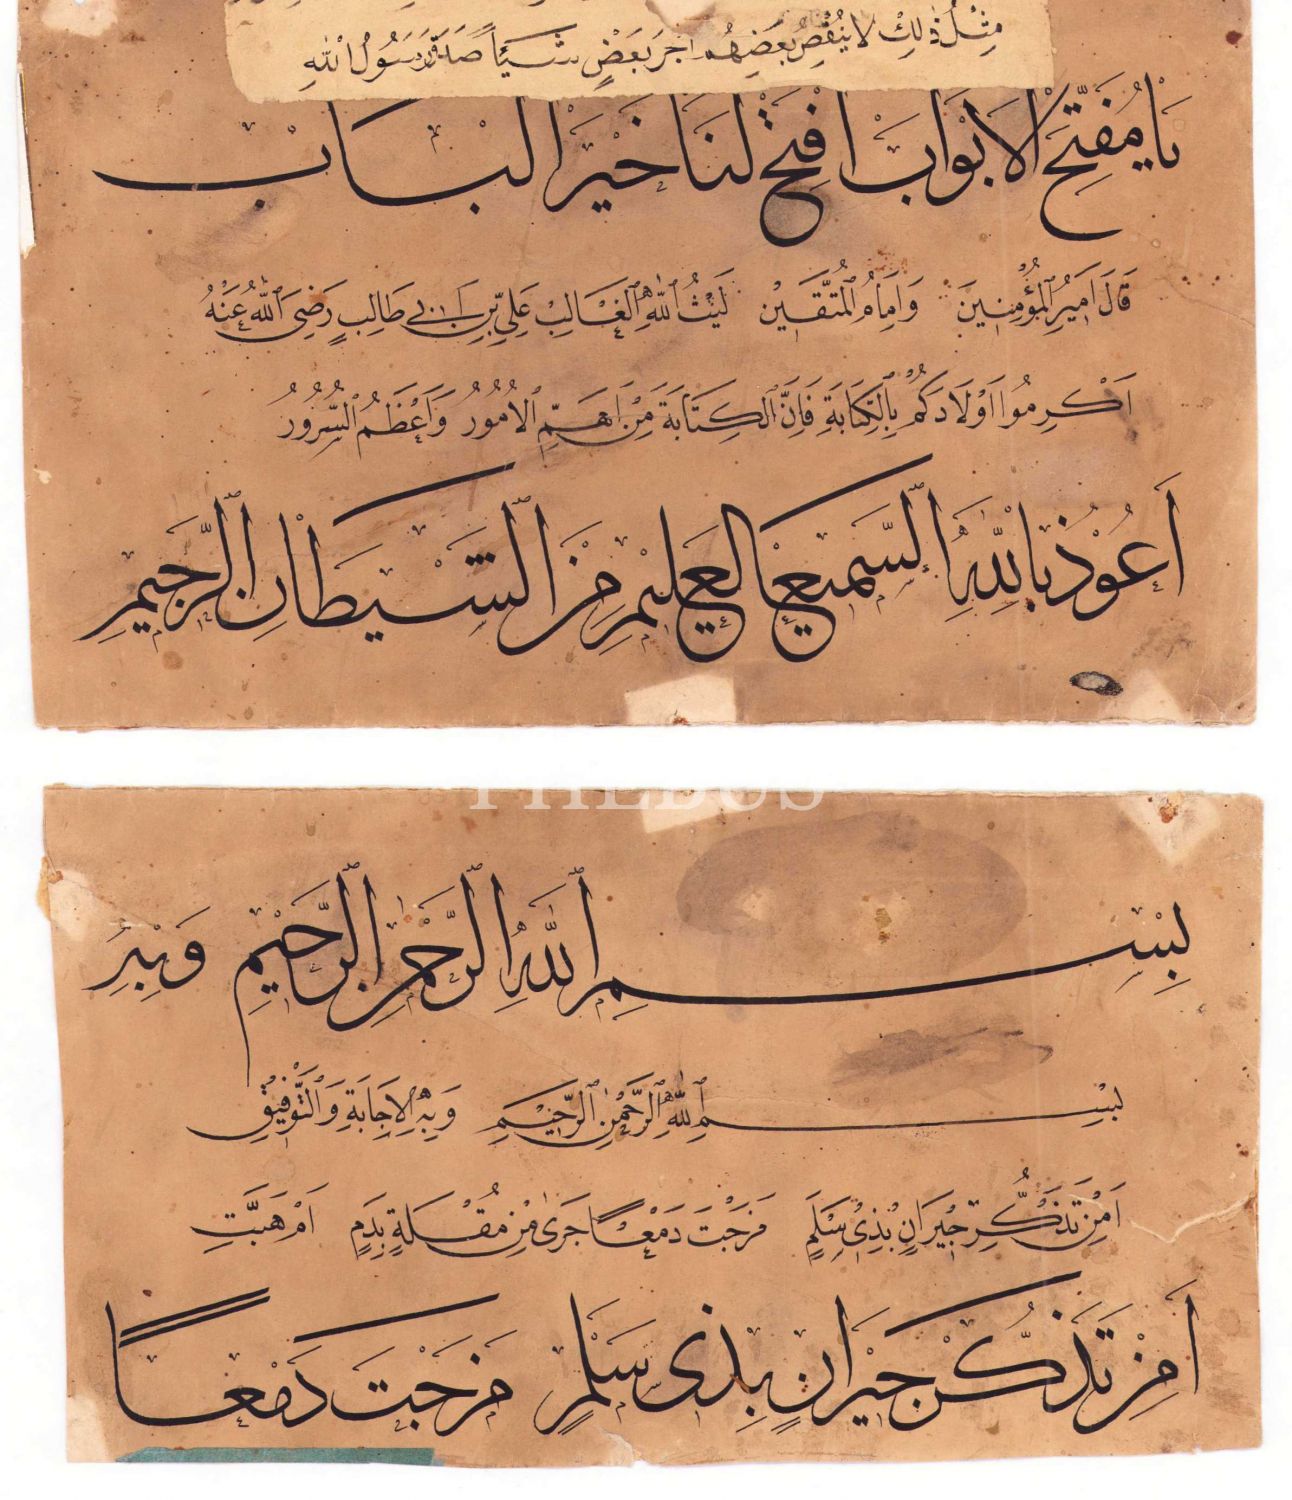 مِثْلُ ذٰلِكَ لَا يَنْقُصُ بَعْضُهُمْ اَجْرَ بَعْضٍ شَيْئًا صَدَقَ رَسُولُ اللّٰهِ
يَا مُفَتِّحَ الْاَبْوَابِ افْتَحْ لَنَا خَيْرَ الْبَابِ
قَالَ اَمِيرُ الْمُؤْمِنِينَ وَاِمَامُ الْمُتَّقِينَ لَيْثُ اللّٰهِ الْغَالِبِ عَلِيِّ بْنِ اَبِي طَالِبٍ رَضِيَ اللّٰهُ عَنْهُ
اَكْرِمُوا اَوْلَادَكُمْ بِالْكِتَابَةِ فَاِنَّ الْكِتَابَةَ مِنْ اَهَمِّ الْاُمُورُ وَاَعْظَمُ السُّرُورُ
اَعُوذُ بِاللّٰهِ السَّمِيعِ الْعَلِيمِ مِنَ الشَّيْطَانِ الرَّجِيمِ
PHEBUS
بِسْمِ اللّٰهِ الرَّحْمٰنِ الرَّحِيْمِ وَبِهِ
بِسْمِ اللّٰهِ الرَّحْمٰنِ الرَّحِيْمِ وَبِهِ الْاِجَابَةِ وَالتَّوْفِيْقِ
اَمِنْ تَذَكُّرِ جِيْرَانٍ بِذِيْ سَلَمٍ مَزَجْتَ دَمْعًا جَرٰى مِنْ مُقْلَةٍ بِدَمٍ اَمْ هَبَّتِ
اَمِنْ تَذَكُّرِ جِيْرَانٍ بِذِي سَلَمٍ مَزَجْتَ دَمْعًا